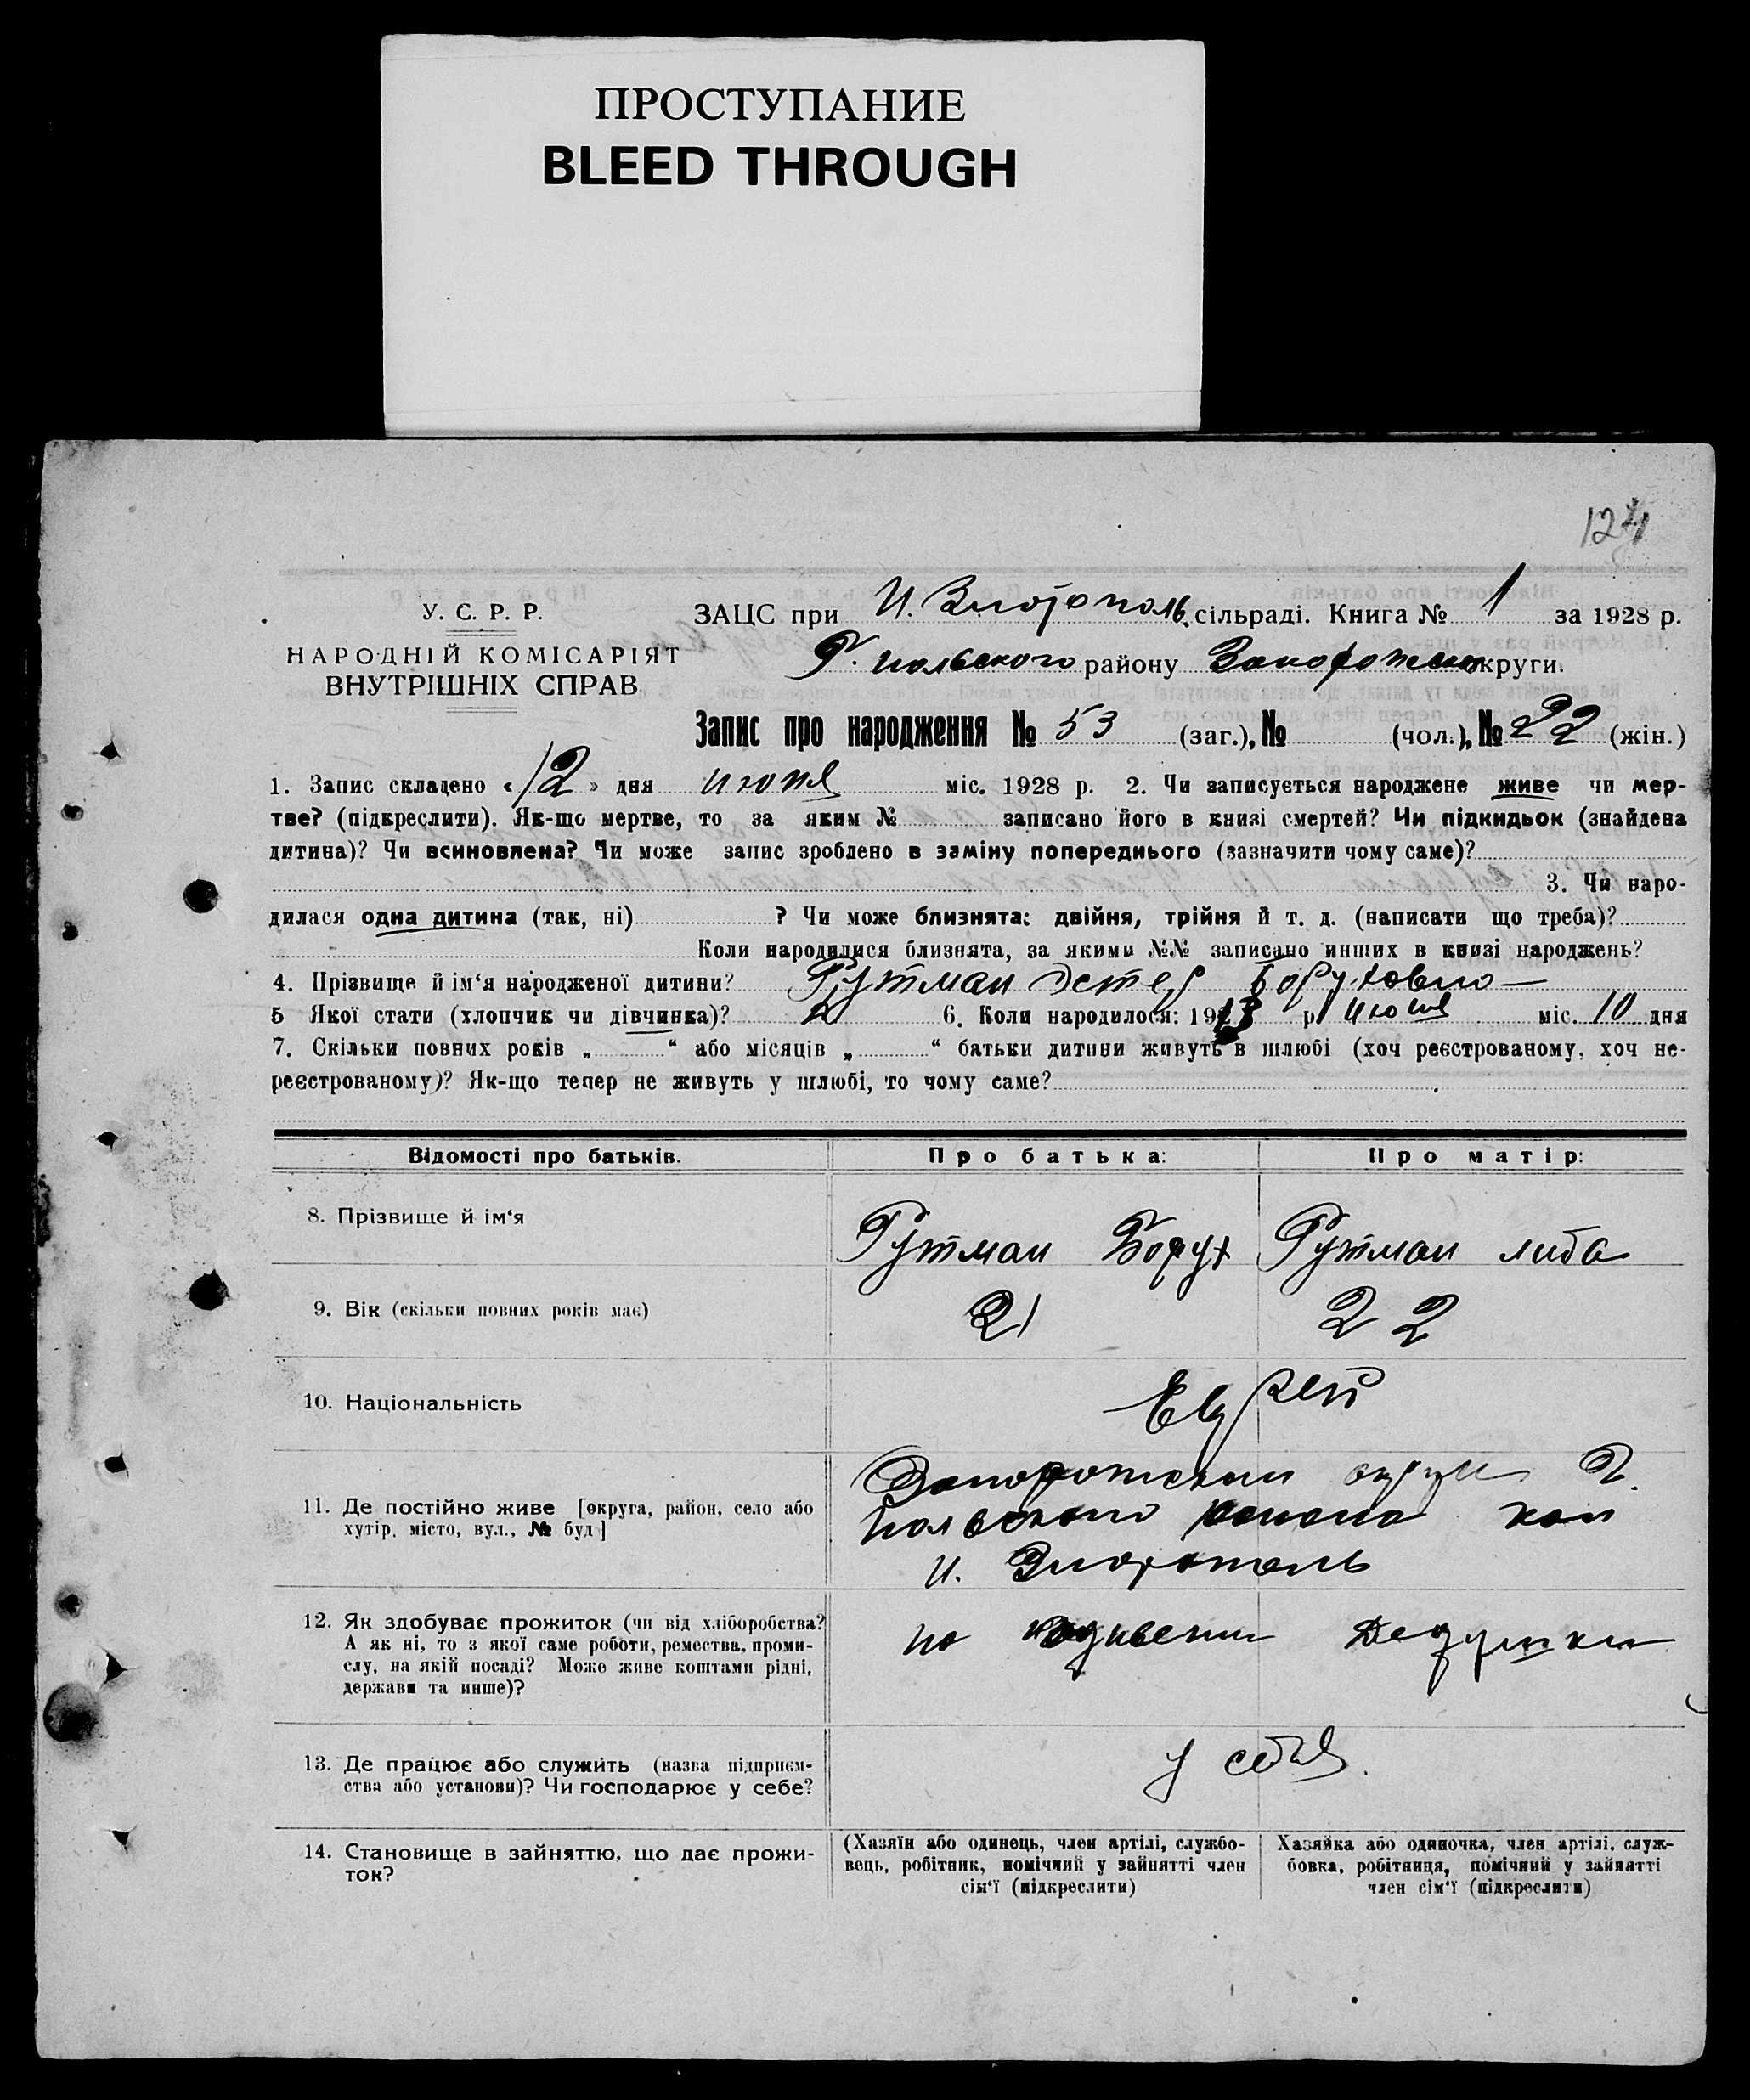 ПРОСТУПАНИЕ
BLEED THROUGH
124
У. С. Р. Р.
НАРОДНІЙ КОМІСАРІЯТ
ВНУТРІШНІХ СПРАВ
ЗАЦС при И. Златополь сільраді. Книга № 1 за 1928 р.
Г. польского району Запорожской округи.
Запис про народження № 53 (заг.), № (чол.), № 22 (жін.)
1. Запис складено « 12 » дня июня міс. 1928 р. 2. Чи записується народжене живе чи мер-
тве? (підкреслити). Як-що мертве, то за яким № записано його в книзі смертей? Чи підкидьок (знайдена
дитина)? Чи всиновлена? Чи може запис зроблено в заміну попереднього (зазначити чому саме)?
3. Чи наро-
дилася одна дитина (так, ні) ? Чи може близнята: двійня, трійня й т. д. (написати що треба)?
Коли народилися близнята, за якими №№ записано инших в книзі народжень?
4. Прізвище й ім‘я народженої дитини? Гутман Эстер Боруховна
5 Якої стати (хлопчик чи дівчинка)? 6. Коли народилося: 19 р. июня міс. 10 дня
7. Скільки повних років „ “ або місяців „ “ батьки дитини живуть в шлюбі (хоч реєстрованому, хоч не-
реєстрованому)? Як-що тепер не живуть у шлюбі, то чому саме?
Відомості про батьків. Про батька: Про матір:
8. Прізвище й ім‘я Гутман Борух Гутман Либа
9. Вік (скільки повних років має) 21 22
10. Національність Еврей
11. Де постійно живе [округа, район, село або
хутір, місто, вул., № буд]
Запорожской округи Г.
польского района кол
И. Златополь
12. Як здобуває прожиток (чи від хліборобства?
А як ні, то з якої саме роботи, ремества, проми-
слу, на якій посаді? Може живе коштами рідні,
держави та инше)?
на иждивении Дедушки
13. Де працює або служить (назва підприєм-
ства або установи)? Чи господарює у себе?
у себя.
14. Становище в зайняттю, що дає прожи-
ток?
(Хазяїн або одинець, член артілі, службо-
вець, робітник, помічний у зайнятті член
сім‘ї (підкреслити)
Хазяйка або одиночка, член артілі, служ-
бовка, робітниця, помічний у зайнятті
член сім‘ї (підкреслити)